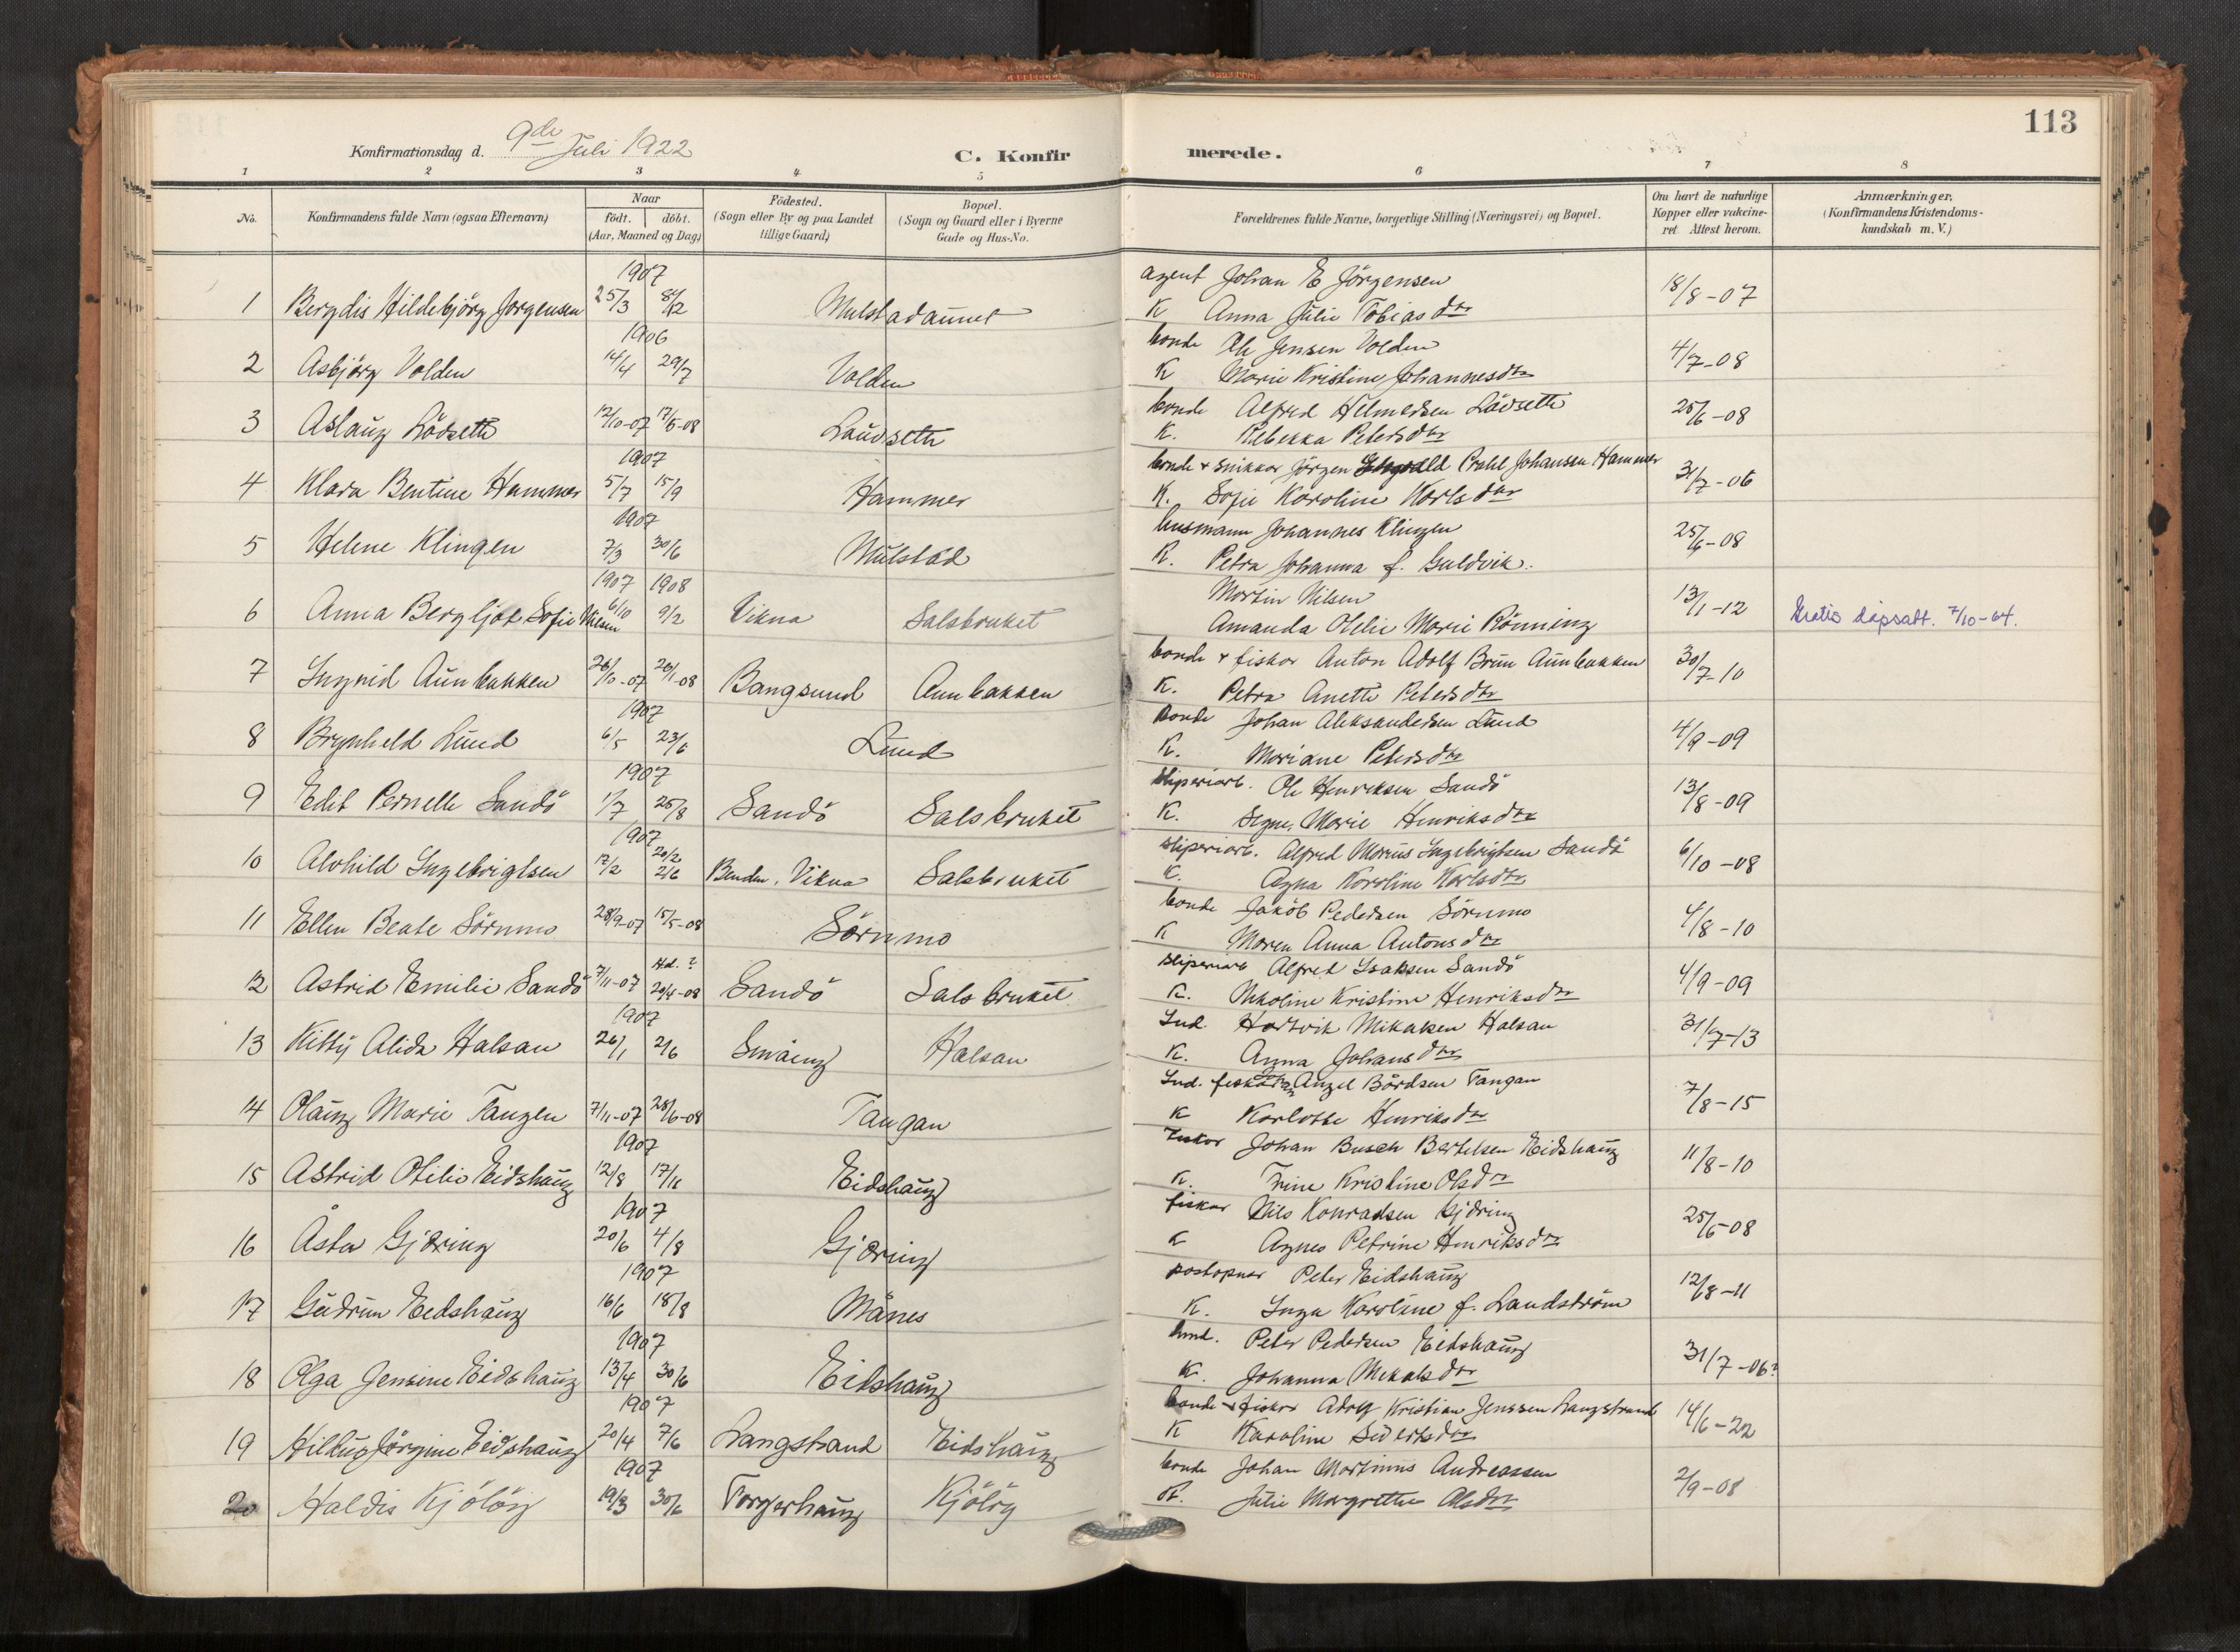 113
Konfirmationsdag d. 9de Juli 1922
C. Konfirmerede.
1 2 3 4 5 6 7 8
No. Konfirmandens fulde Navn (ogsaa Efternavn) Naar født. døbt. (Aar, Maaned og Dag) Fødested. (Sogn eller By og paa Landet tillige Gaard) Bopæl. (Sogn og Gaard eller i Byerne Gade og Hus-No. Forældrenes fulde Navne, borgerlige Stilling (Næringsvei) og Bopæl. Om havt de naturlige Kopper eller vakcineret. Attest herom. Anmærkninger, (Konfirmandens Kristendomskundskab m. V.)
1907 agent Johan E Jörgensen
1 Bergdis Hildebjörg Jörgensen 25/3 Mulstadaunet K Anna Julie Tobiasdtr 18/8-07
1906 bonde Ole Jensen Volden
2 Asbjörg Volden 14/4 29/7 Volden K Marie Kristine Johannesdtr 4/7-08
bonde Alfred Helmersen Lödseth
3 Aslaug Lödseth 12/10-07 17/5-08 Laudseth K. Rebekka Petersdtr 25/6-08
1907 bonde + snikkar Jörgen Prahl Johansen Hammer
4 Klara Bentine Hammer 5/7 15/9 Hammer K. Sofie Karoline Karlsdtr 31/7-06
1907 husmann Johannes Klingen
5 Helene Klingen 7/3 30/6 Mulstad K. Petra Johanna f. Guldvik. 25/6-08
1907 1908 Martin Nilsen
6 Anna Bergljot Sofie Nilsen 6/10 9/2 Vikna Salsbruket Amanda Otelie Marie Rönning 13/1-12 Gratis dåpsatt. 7/10-64.
bonde + fiskar Anton Adolf Brun Aunbakken
7 Ingrid Aunbakken 26/10-07 26/1-08 Bangsund Aunbakken K. Petra Anette Petersdtr 30/7-10
1907 bonde Johan Aleksandersen Lund
8 Brynheld Lund 6/5 23/6 Lund K. Mariane Petersdtr 4/9-09
1907 sliperiarb. Ole Henriksen Sandö
9 Edit Pernelle Sandö 1/7 25/8 Sandö Salsbruket K. Signe Marie Henriksdtr 13/8-09
1907 sliperiarb. Alfred Marius Ingebrigtsen Sandö
10 Alvhild Ingebrigtsen 17/2 20/2 2/6 Vikna Salsbruket K. Agna Karoline Karlsdtr 6/10-08
bonde Jakob Pedersen Sörnmo
11 Ellen Beate Sörnmo 28/9-07 15/5-08 Sörnmo K Maren Anna Antonsdtr 4/8-10
Hd. ? sliperiarb Alfred Isaksen Sandö
12 Astrid Emilie Sandö 7/11-07 20/4-08 Sandö Salsbruket K. Nikoline Kristine Henriksdtr 4/9-09
1907 Ind. Hartvik Mikalsen Halsan
13 Kitty Alida Halsan 26/1 2/6 Halsan K. Anna Johansdtr 31/7-13
Ind. fiskar Angel Bårdsen Tangan
14 Olaug Marie Tangen 7/11-07 28/6-08 Tangan K Karlotte Henriksdtr 7/8-15
1907 fiskar Johan Busch Bertelsen Eidshaug
15 Astrid Otilie Eidshaug 12/8 17/11 Eidshaug K. Trine Kristine Olsdtr 11/8-10
1907 fiskar Nils Konradsen Gjöring
16 Åsta Gjöring 20/6 4/8 Gjöring K Agnes Petrine Henriksdtr 25/6-08
1907 postopnar Peter Eidshaug
17 Gudrun Eidshaug 16/6 18/8 Månes K. Inga Karoline f. Landström 12/8-11
1907 Peter Pedersen Eidshaug
18 Olga Jensine Eidshaug 13/4 30/6 Eidshaug K. Johanna Mikalsdtr 31/7-06?
1907 bonde + fiskar Adolf Kristian Jenssen Langstrand
19 Hildug Jörgine Eidshaug 20/4 7/6 Langstrand Eidshaug K Karoline Sivertsdtr 14/6-22
1907 bonde Johan Martinus Andreassen
20 Haldis Kjölög 19/3 30/6 Torgerhaug Kjölög K. Julie Margrethe Olsdtr 2/9-08